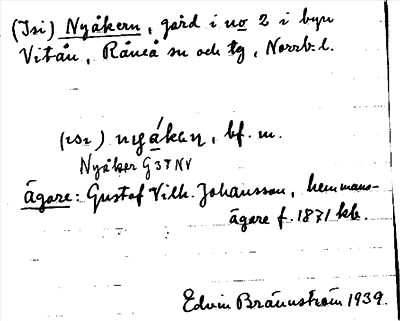 (Isi) Nyåkern, gård i no 2 i byn
Vitån, Råneå sn och tg, Norrb:l.
nyákaɳ, bf. m.
Nyåker G37 NV
Ägare: Gustaf Vilh. Johansson, hemmans-
ägare f. 1871 kb.
Edvin Brännström 1939.